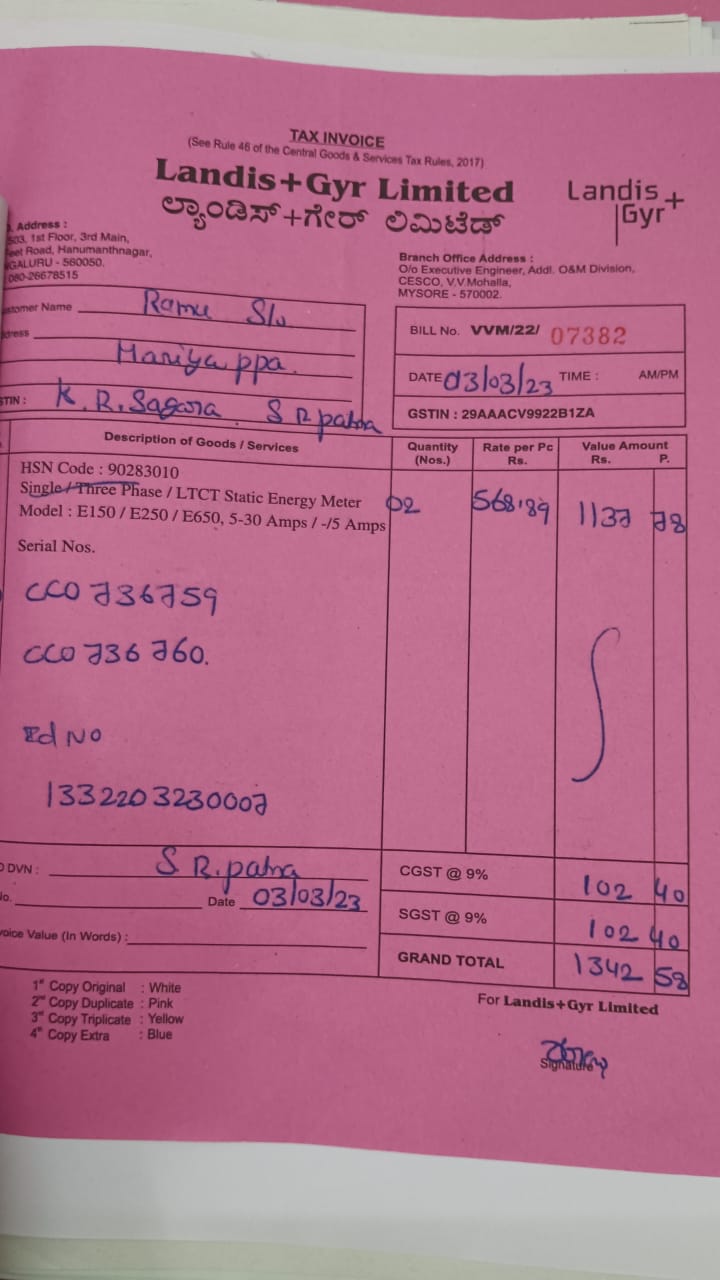 TAX INVOICE
(See Rule 46 of the Central Goods & Services Tax Rules, 2017)
Landis+Gyr Limited
ಲ್ಯಾಂಡಿಸ್+ಗೇರ್ ಲಿಮಿಟೆಡ್
Landis+
Gyr
Address :
503, 1st Floor, 3rd Main,
Road, Hanumanthnagar,
GALURU - 560050.
080-26678515
Branch Office Address :
O/o Executive Engineer, Addl. O&M Division,
CESCO, V.V.Mohalla,
MYSORE - 570002.
stomer Name Ramu S/o
dress Mariyappa.
STIN : K. R. Sagara S R patna
BILL No. VVM/22/ 07382
DATE 03/03/23 TIME : AM/PM
GSTIN : 29AAACV9922B1ZA
Description of Goods / Services Quantity (Nos.) Rate per Pc Rs. Value Amount Rs. P.
HSN Code : 90283010
Single / Three Phase / LTCT Static Energy Meter 02 568.89 1137 78
Model : E150 / E250 / E650, 5-30 Amps / -/5 Amps
Serial Nos.
CC0 736759
CC0 736760.
Ed No
1332203230007
DVN : S R. patna
No. Date 03/03/23
voice Value (In Words) :
CGST @ 9% 102 40
SGST @ 9% 102 40
GRAND TOTAL 1342 58
1st Copy Original : White
2nd Copy Duplicate : Pink
3rd Copy Triplicate : Yellow
4th Copy Extra : Blue
For Landis+Gyr Limited
Signature